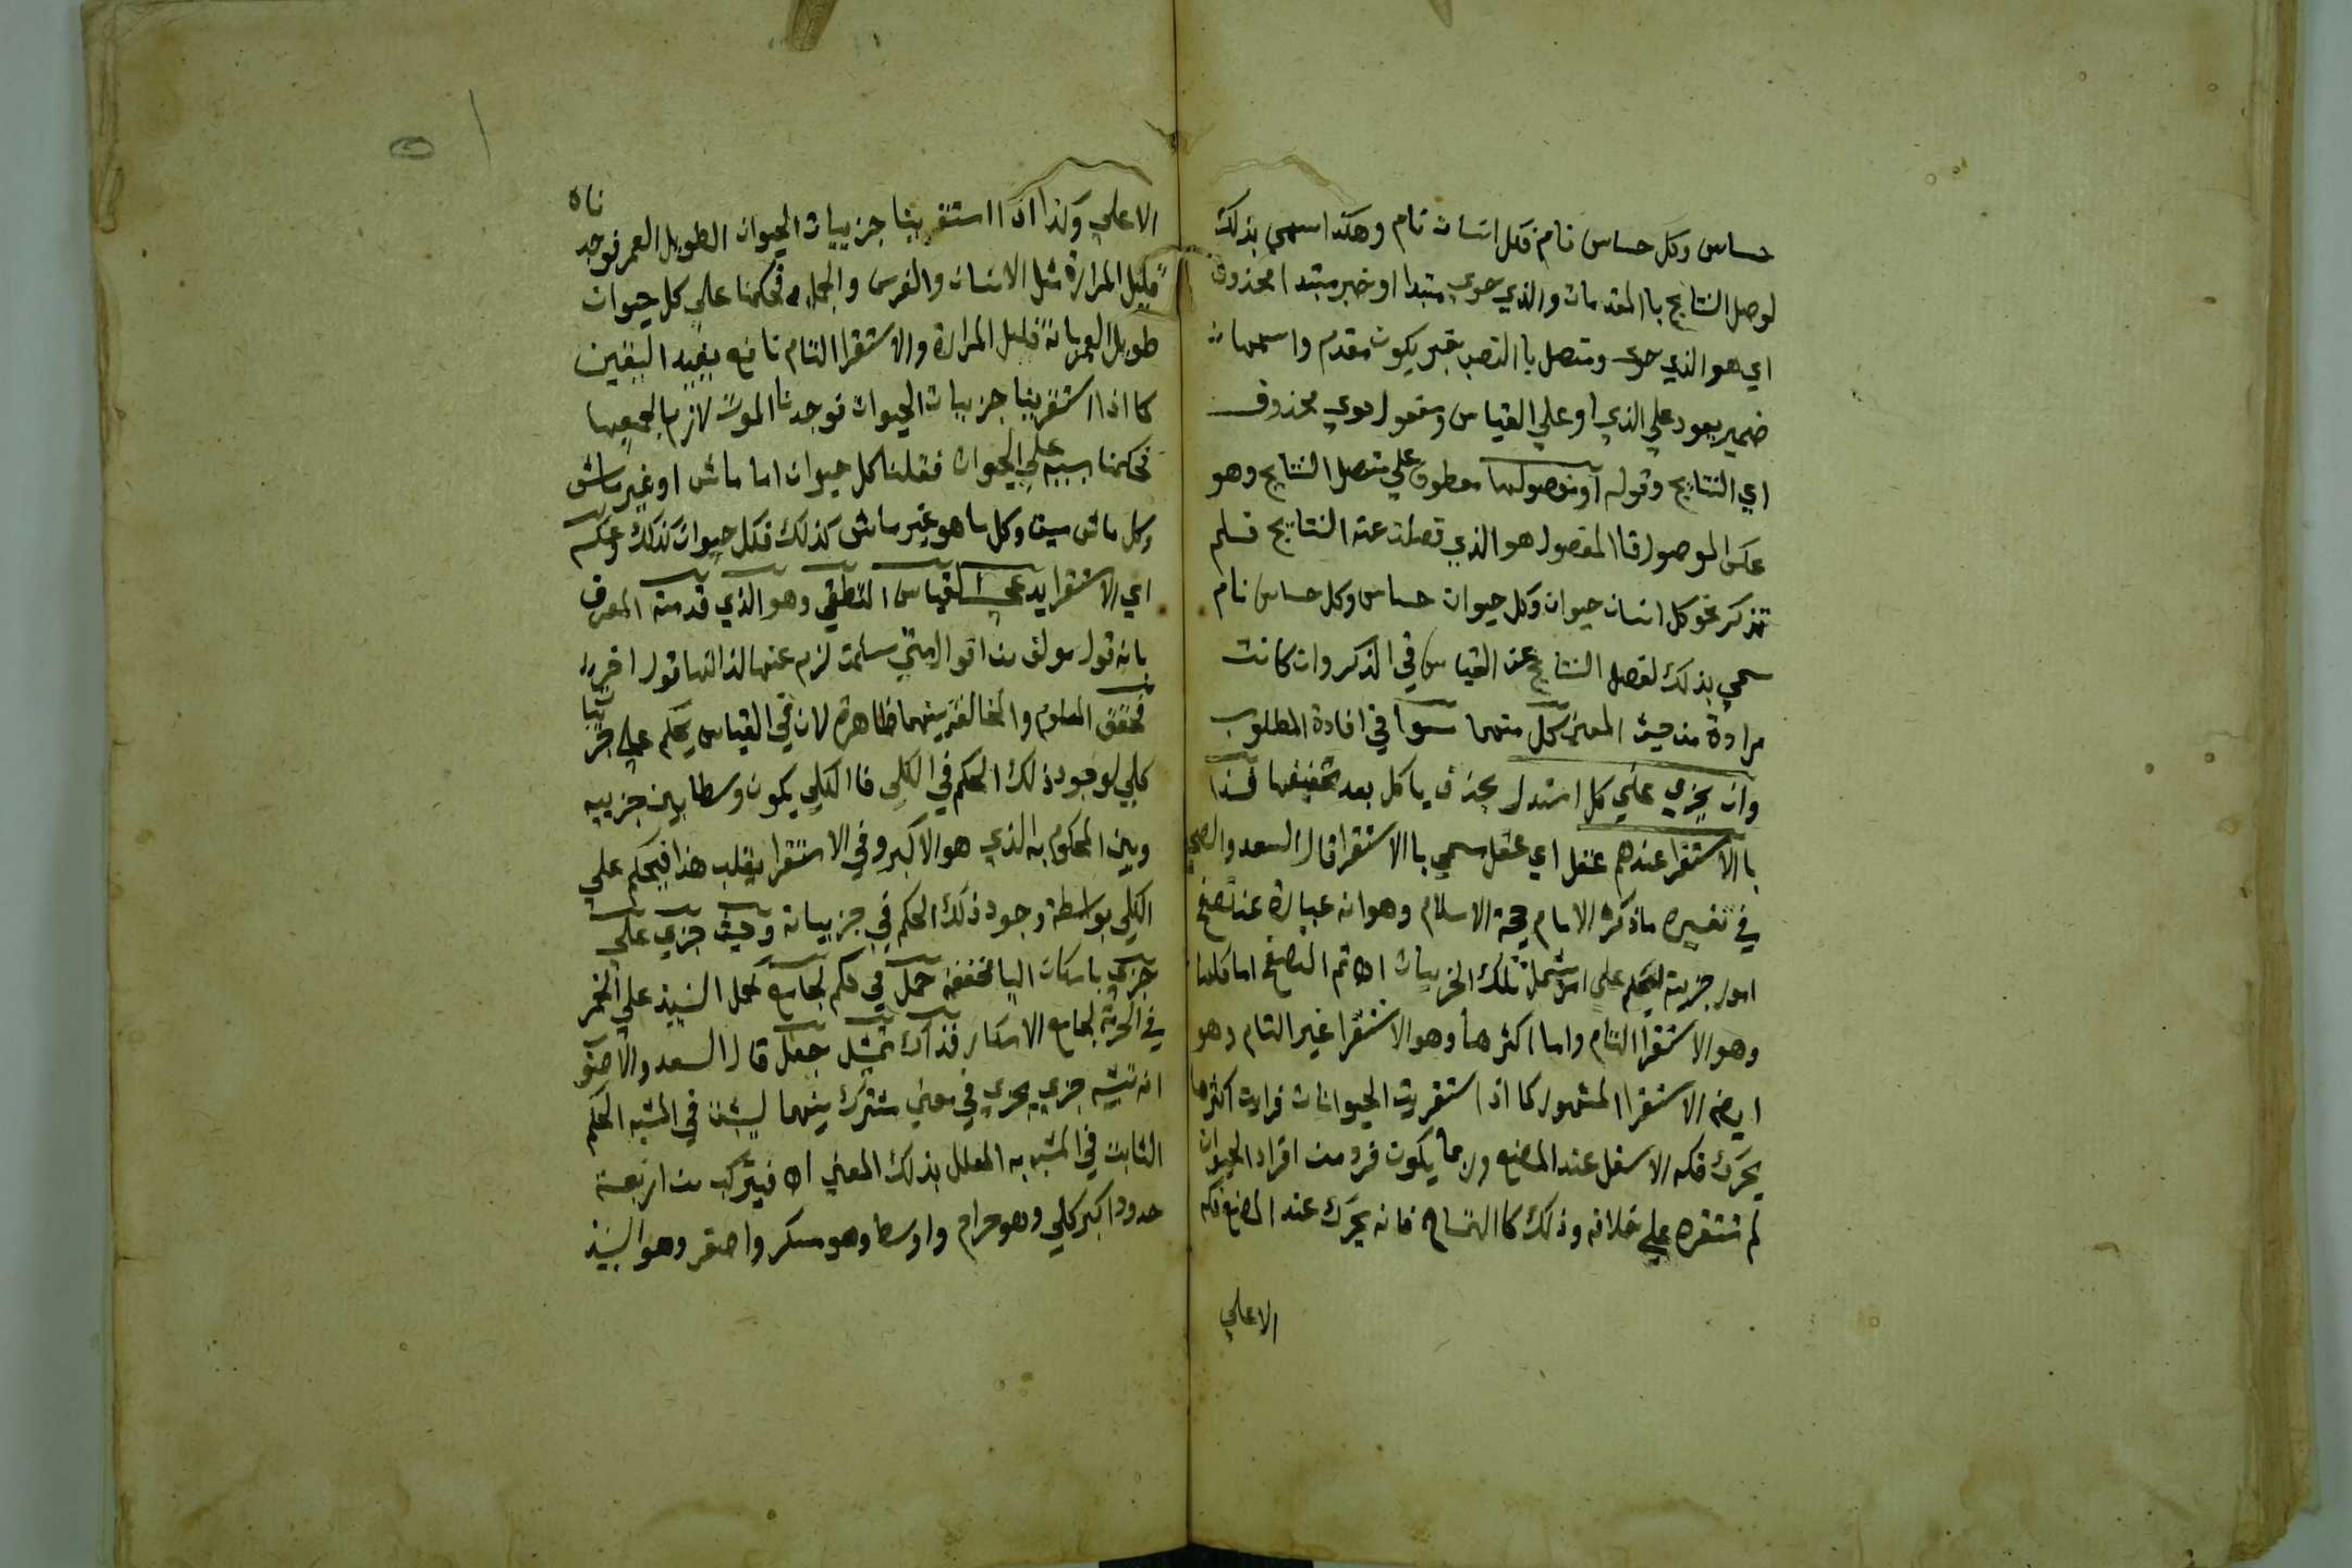 حساس وكل حساس نام فكل انسان نام وهكذا سمي بذلك
لوصل النتايج باالمقدمات والذي حوي مبتدا او خبر مبتدا محذوف
اي هو الذي حوى ومتصل باالنصب خبر يكون مقدم واسمها
ضمير يعود علي الذي او علي القياس ومفعول حوي محذوف
اي النتايج وقوله او مفصولها معطوف علي متصل النتايج وهو
عكس الموصول فاالمفصول هو الذي فصلت عنه النتايج فلم
تذكر نحو كل انسان حيوان وكل حيوان حساس وكل حساس نام
سمي بذلك لفصل النتايج عن القياس في الذكر وان كانت
مرادة من حيث المعني كل منهما سوا في افادة المطلوب
وان بجزي علي كل استدل بحذف ياكل بعد تخفيفها فذا
باالاستقرا عندهم عقل اي عقل سمي باالاستقرا قال السعد والصحيح
في تفسيره ماذكره الامام حجة الاسلام وهو انه عبارة عن تصفح
امور جزيية ليحكم علي امر يشمل تلك الجزييات اه ثم التصفح اما كلها
وهو الاستقرا التام واما اكثرها وهو الاستقرا غير التام وهو
ايض الاستقرا المشهور كما اذا استقريت الحيوانات فرايت اكثرها
يحرك فكه الاسفل عند المضغ وربما يكون فرد من افراد الحيوان
لم تستقره علي خلافه وذلك كاالتمساح فانه يحرك عند المضغ فكه
الاعلي
الاعلي وكذا اذا استقرينا جزييات الحيوان الطويل العمر فوجدناه
قليل المرارة مثل الانسان والفرس والجمل فحكمنا علي كل حيوان
طويل العمر بانه قليل المرارة والاستقرا التام نافع يفيد اليقين
كما اذا استقرينا جزييات الحيوان فوجدنا الموت لازم لجميعها
فحكمنا بسببه علي الحيوان فقلنا كل حيوان اما ماش او غير ماش
وكل ماش ميت وكل ما هو غير ماش كذلك فكل حيوان كذلك وعكسه
اي الاستقرا يدعي القياس المنطقي وهو الذي قدمته المعرف
بانه قول مولف من اقوال متي سلمت لزم عنها لذاتها قول اخر
فحقق المعلوم والمخالفة بينهما ظاهرة لان في القياس يحكم علي جزييات
كلي لوجود ذلك الحكم في الكلي فاالكلي يكون وسطا بين جزييه
وبين المحكوم به الذي هو الاكبر وفي الاستقرا يقلب هذا فيحكم علي
الكلي بواسطة وجود ذلك الحكم في جزيياته وحيث جزي علي
جزي باسكان اليا مخففة حمل في حكم لجامع كحمل النبيذ علي الخمر
في الحرمة لجامع الاسكار فذاك تمثيل جعل قال السعد والاصوب
انه تشبيه جزي بجزي في معني مشترك بينهما ليثبت في المشبه الحكم
الثابت في المشبه به المعلل بذلك المعني اه فيتركب من اربعة
حدود اكبر كلي وهو حرام واوسط وهو مسكر واصغر وهو النبيذ